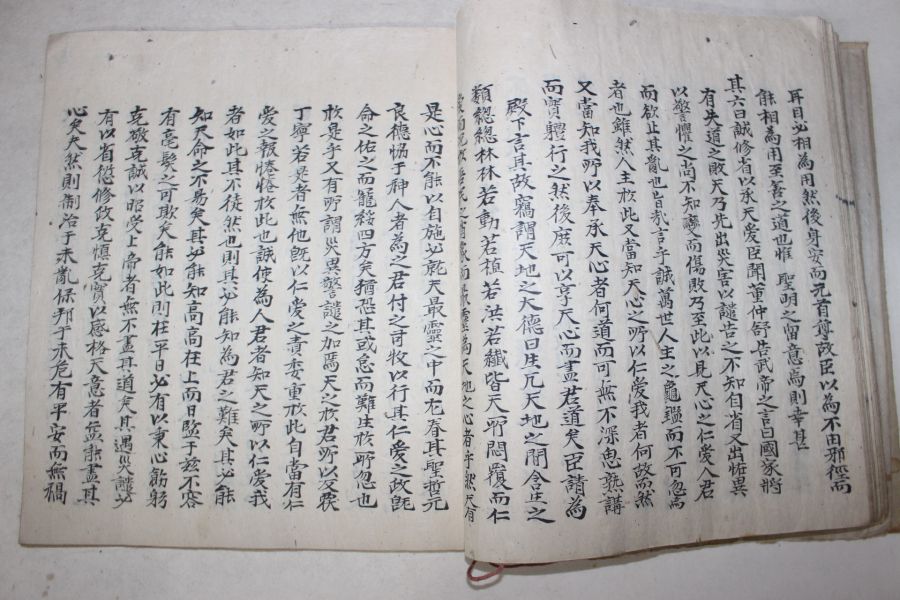 耳目必相為用然後身安而元首尊故臣以為不由邪徑而
能相為用至善之道也惟 聖明之留意焉則幸甚
其六曰誠修省以承天愛臣聞董仲舒告武帝之言曰國家將
有失道之敗天乃先出災害以譴告之不知自省又出恠異
以警懼之尚不知變而傷敗乃至此以見天心之仁愛人君
而欲止其亂也旨哉言乎誠萬世人主之龜鑑而不可忽焉
者也雖然人主於此又當知天心之所以仁愛我者何故而然
又當知我所以奉承天心者何道而可無不深思熟講
而實體行之然後庶可以享天心而盡君道矣臣請為
殿下言其故竊謂天地之大德曰生凡天地之間含生之
類總總林林若動若植若洪若纖皆天所悶覆而仁
是心而不能以自施必就天最靈之中而尤眷其聖哲元
良德恊于神人者為之君付之司牧以行其仁愛之政旣
命之佑之而寵綏四方矣猶恐其或怠而難生於所忽也
故是乎又有所謂災異警譴之加焉天之於君所以反覆
丁寧若是者無他旣以仁愛之責委重於此自當有仁
愛之報惓惓於此也誠使為人君者知天之所以仁愛我
者如此其不徒然也則其必能知為君之難矣其必能
知天命之不易矣其必能知高高在上而日監于玆不容
有毫髮之可欺矣能如此則在平日必有以秉心飭躬
克敬克誠以昭受上帝者無不盡其道矣其遇災譴必
有以省愆修攺克愼克實以感格天意者益能盡其
心矣夫然則制治于未亂保邦于未危有平安而無禍